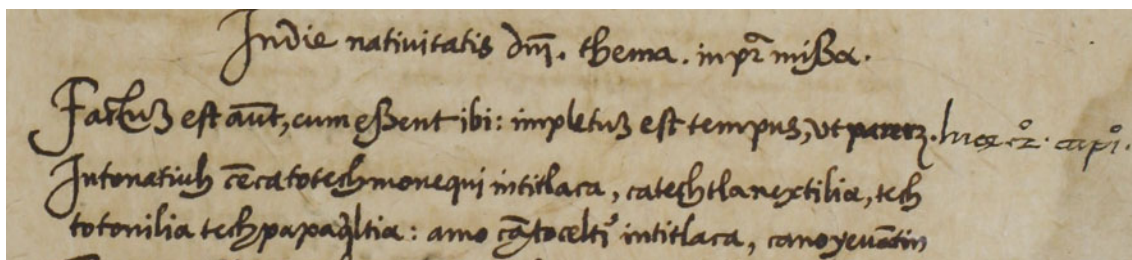 Indie natiuitatis dnī. thema. in pr̄ missa.
Factuꝫ est aūt, cum essent ibi: impletuꝫ est tempus, vt pareretꝫ. lucæ .2̊. capı̊.
Intonatiuh cēca totech monequi intitlaca, catechtlanextilia, tech
totonilia techpapaq̄ltia: amo çā toceltī intitlaca, ca no yeuātin